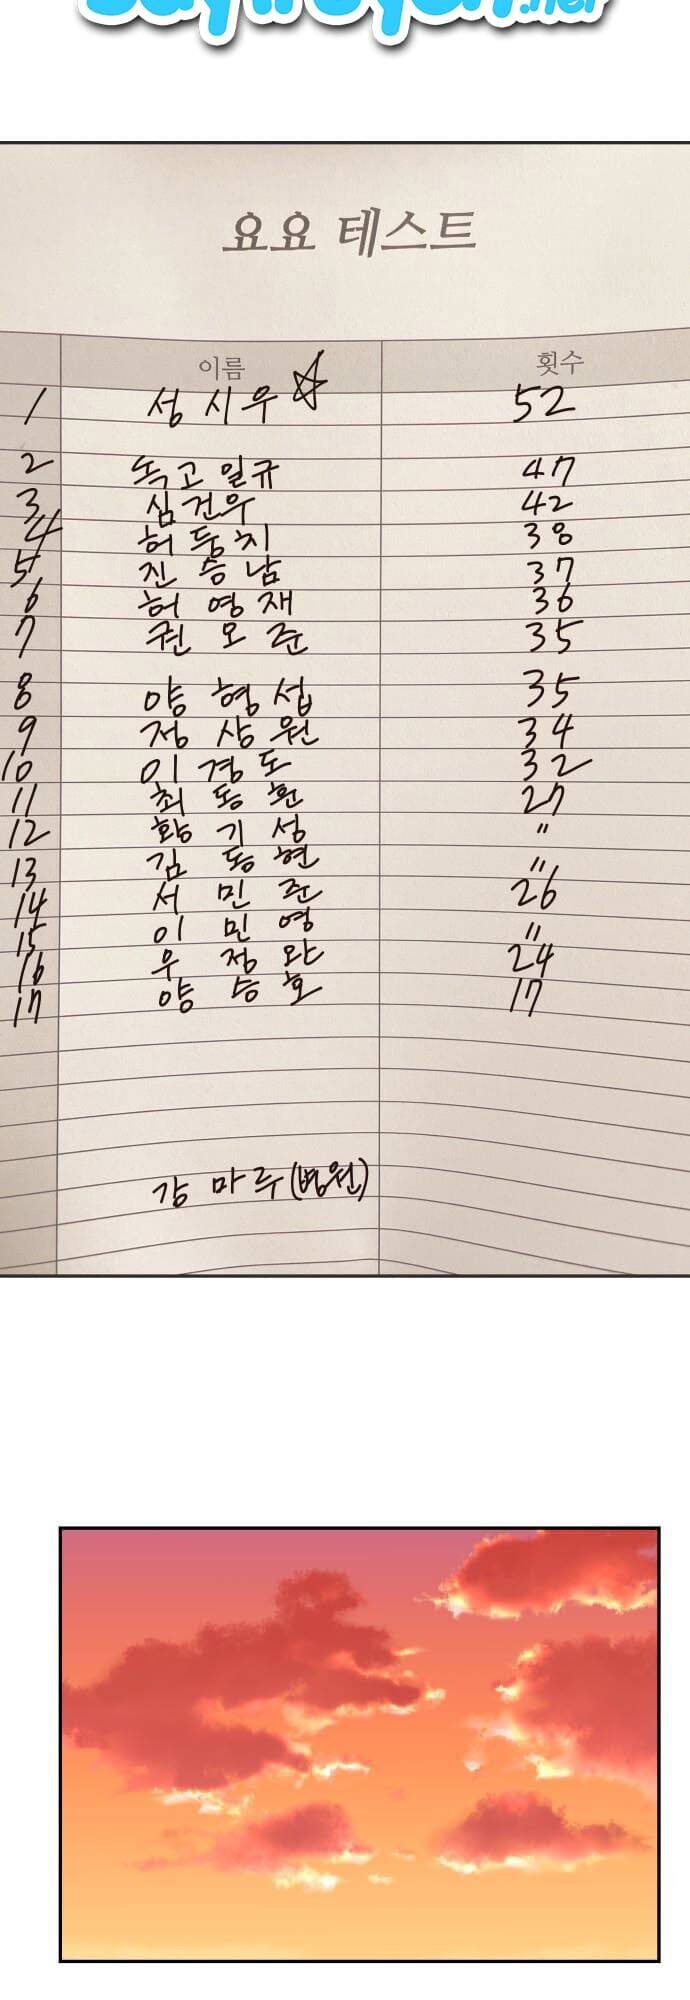 요요 테스트
이름 횟수
1 성시우☆ 52
2 독고일규 47
3 심건우 42
4 허동치 38
5 진승남 37
6 허영재 36
7 권오준 35
8 양형섭 35
9 정상원 34
10 이경도 32
11 최동환 27
12 황기성 "
13 김동현 "
14 서민준 26
15 이민영 "
16 우정완 24
17 양승호 17
강마루(병원)